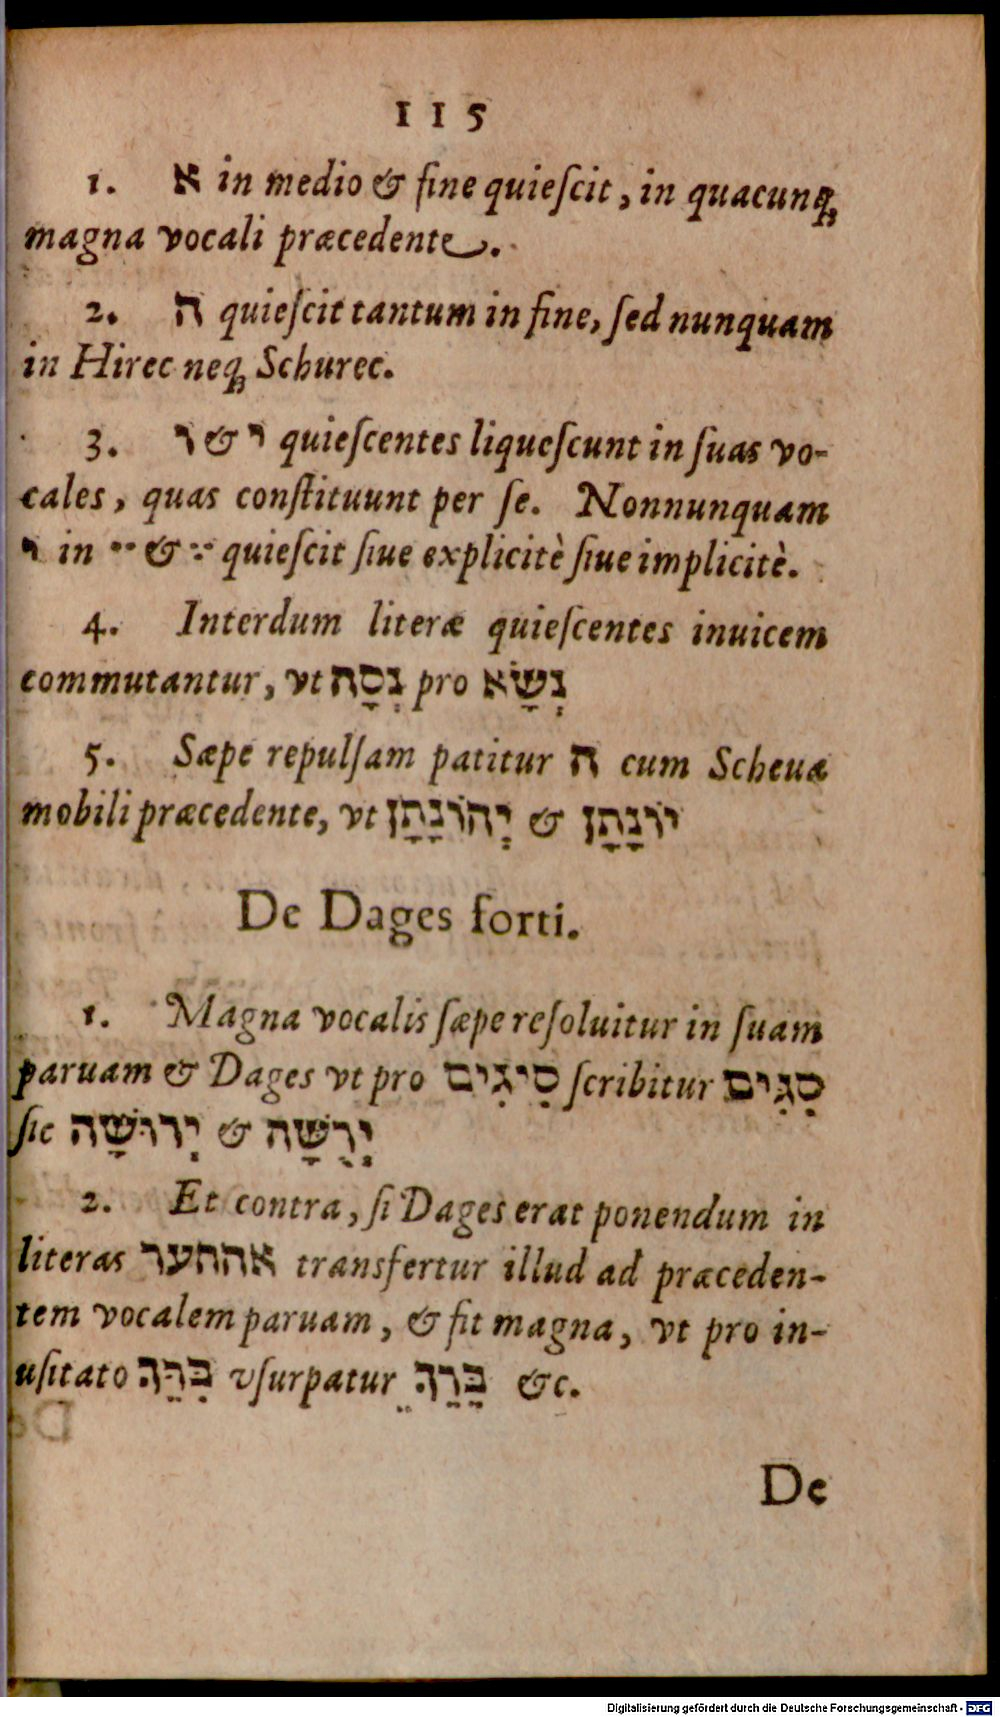 115
1. א in medio & fine quieſcit, in quacunq;
magna vocali præcedente.
2. ה quieſcit tantum in fine, ſed nunquam
in Hirec neq; Schurec.
3. ו & י quieſcentes liqueſcunt in ſuas vo-
cales, quas conſtituunt per ſe. Nonnunquam
י in ֵ & ֶ quieſcit ſiue explicitè ſiue implicitè.
4. Interdum literæ quieſcentes inuicem
commutantur, vt נְסָה pro נְשָׂא
5. Sæpe repulſam patitur ה cum Scheua
mobili præcedente, vt יְהוֹנָתָן & יוֹנָתָן
De Dages forti.
1. Magna vocalis ſæpe reſoluitur in ſuam
paruam & Dages vt pro סִיגִים ſcribitur סִגִּים
ſic יְרוּשָׁה & יְרֻשָּׁה
2. Et contra, ſi Dages erat ponendum in
literas אההער transfertur illud ad præceden-
tem vocalem paruam, & fit magna, vt pro in-
uſitato בִּרֵּךְ vſurpatur בֵּרֵךְ &c.
De
Digitalisierung gefördert durch die Deutsche Forschungsgemeinschaft - DFG